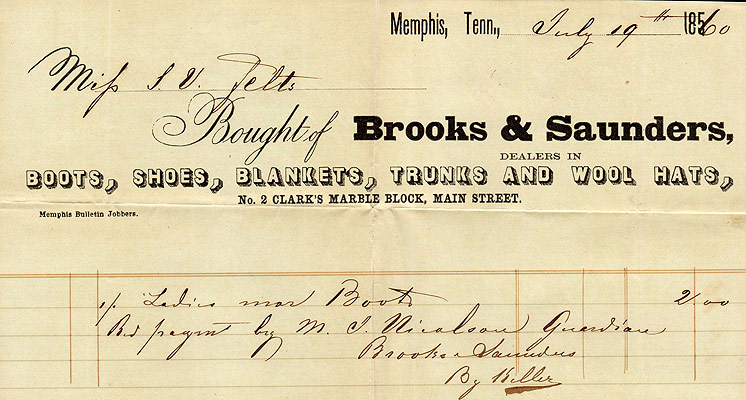 Memphis, Tenn., July 19th 1860
Miss S. V. Felts
Bought of Brooks & Saunders,
DEALERS IN
BOOTS, SHOES, BLANKETS, TRUNKS AND WOOL HATS,
No. 2 CLARK'S MARBLE BLOCK, MAIN STREET.
Memphis Bulletin Jobbers.
1 Ladies mor Boots 2 00
Rd paymt by M. J. Nicolson Guardian
Brooks & Saunders
By Keller